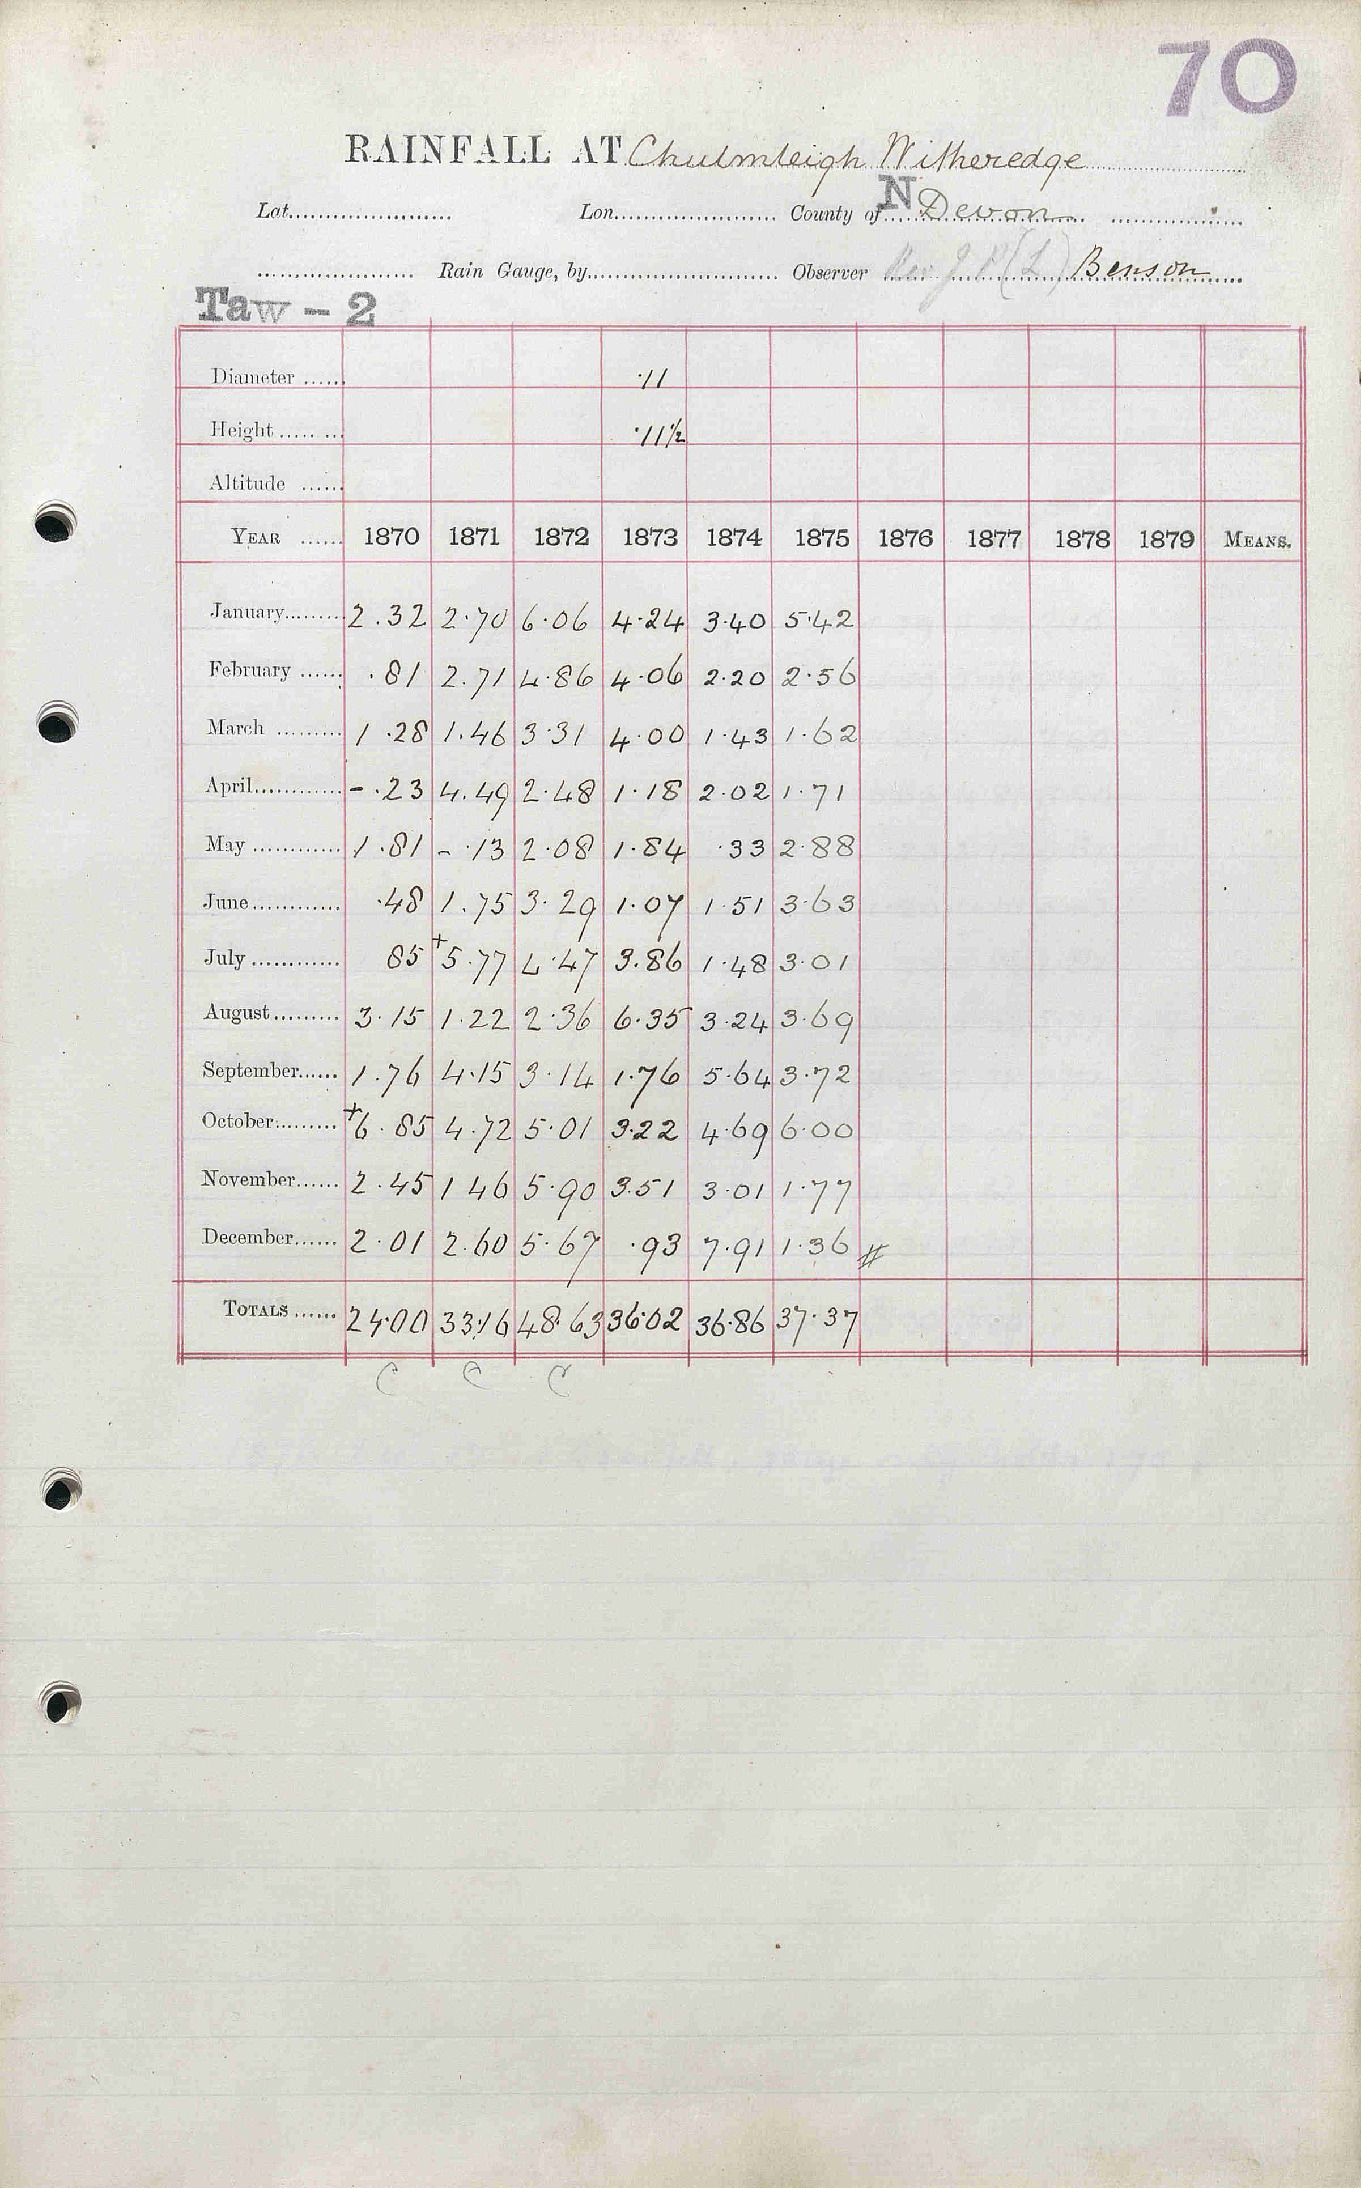 70
RAINFALL AT Chulmleigh Witheredge
Lat. Lon. County of N Devon
Rain Gauge, by Observer Rev. J (L) Benson
Taw - 2
Diameter ...... ·11
Height ........ ·11½
Altitude ......
YEAR ...... 1870 1871 1872 1873 1874 1875 1876 1877 1878 1879 MEANS.
January......... 2.32 2.70 6.06 4.24 3.40 5.42
February ...... .81 2.71 4.86 4.06 2.20 2.56
March ......... 1.28 1.46 3.31 4.00 1.43 1.62
April............ -.23 4.49 2.48 1.18 2.02 1.71
May ............ 1.81 -.13 2.08 1.84 .33 2.88
June............ .48 1.75 3.29 1.07 1.51 3.63
July ............ 85 +5.77 4.47 3.86 1.48 3.01
August......... 3.15 1.22 2.36 6.35 3.24 3.69
September...... 1.76 4.15 3.14 1.76 5.64 3.72
October......... +6.85 4.72 5.01 3.22 4.69 6.00
November...... 2.45 1 46 5.90 3.51 3.01 1.77
December...... 2.01 2.60 5.67 .93 7.91 1.36 #
TOTALS ...... 24.00 33.16 48.63 36.02 36.86 37.37
C C C